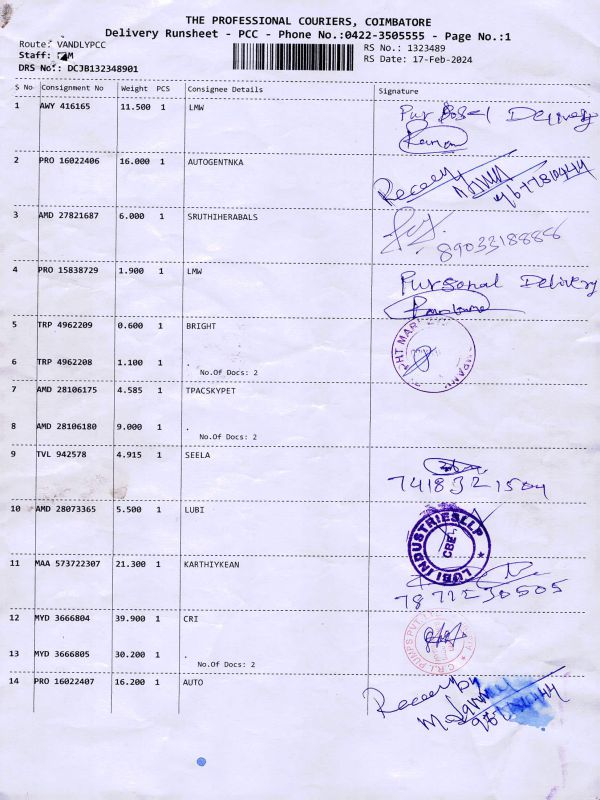 THE PROFESSIONAL COURIERS, COIMBATORE
Delivery Runsheet - PCC - Phone No.:0422-3505555 - Page No.:1
Route: VANDLYPCC
RS No.: 1323489
Staff:
RS Date: 17-Feb-2024
DRS No.: DCJB132348901
S No Consignment No Weight PCS Consignee Details Signature
1 AWY 416165 11.500 1 LMW Pursosel Delivery
2 PRO 16022406 16.000 1 AUTOGENTNKA
3 AMD 27821687 6.000 1 SRUTHIHERABALS
8903318886
4 PRO 15838729 1.900 1 LMW Pursonal Delivery
5 TRP 4962209 0.600 1 BRIGHT
6 TRP 4962208 1.100 1 .
No.Of Docs: 2
7 AMD 28106175 4.585 1 TPACSKYPET
8 AMD 28106180 9.000 1 .
No.Of Docs: 2
9 TVL 942578 4.915 1 SEELA
7418321504
10 AMD 28073365 5.500 1 LUBI
LUBI INDUSTRIES LLP
CBE
11 MAA 573722307 21.300 1 KARTHIYKEAN
7871230505
12 MYD 3666804 39.900 1 CRI
C.R.I. PUMPS PVT.
13 MYD 3666805 30.200 1 .
No.Of Docs: 2
14 PRO 16022407 16.200 1 AUTO